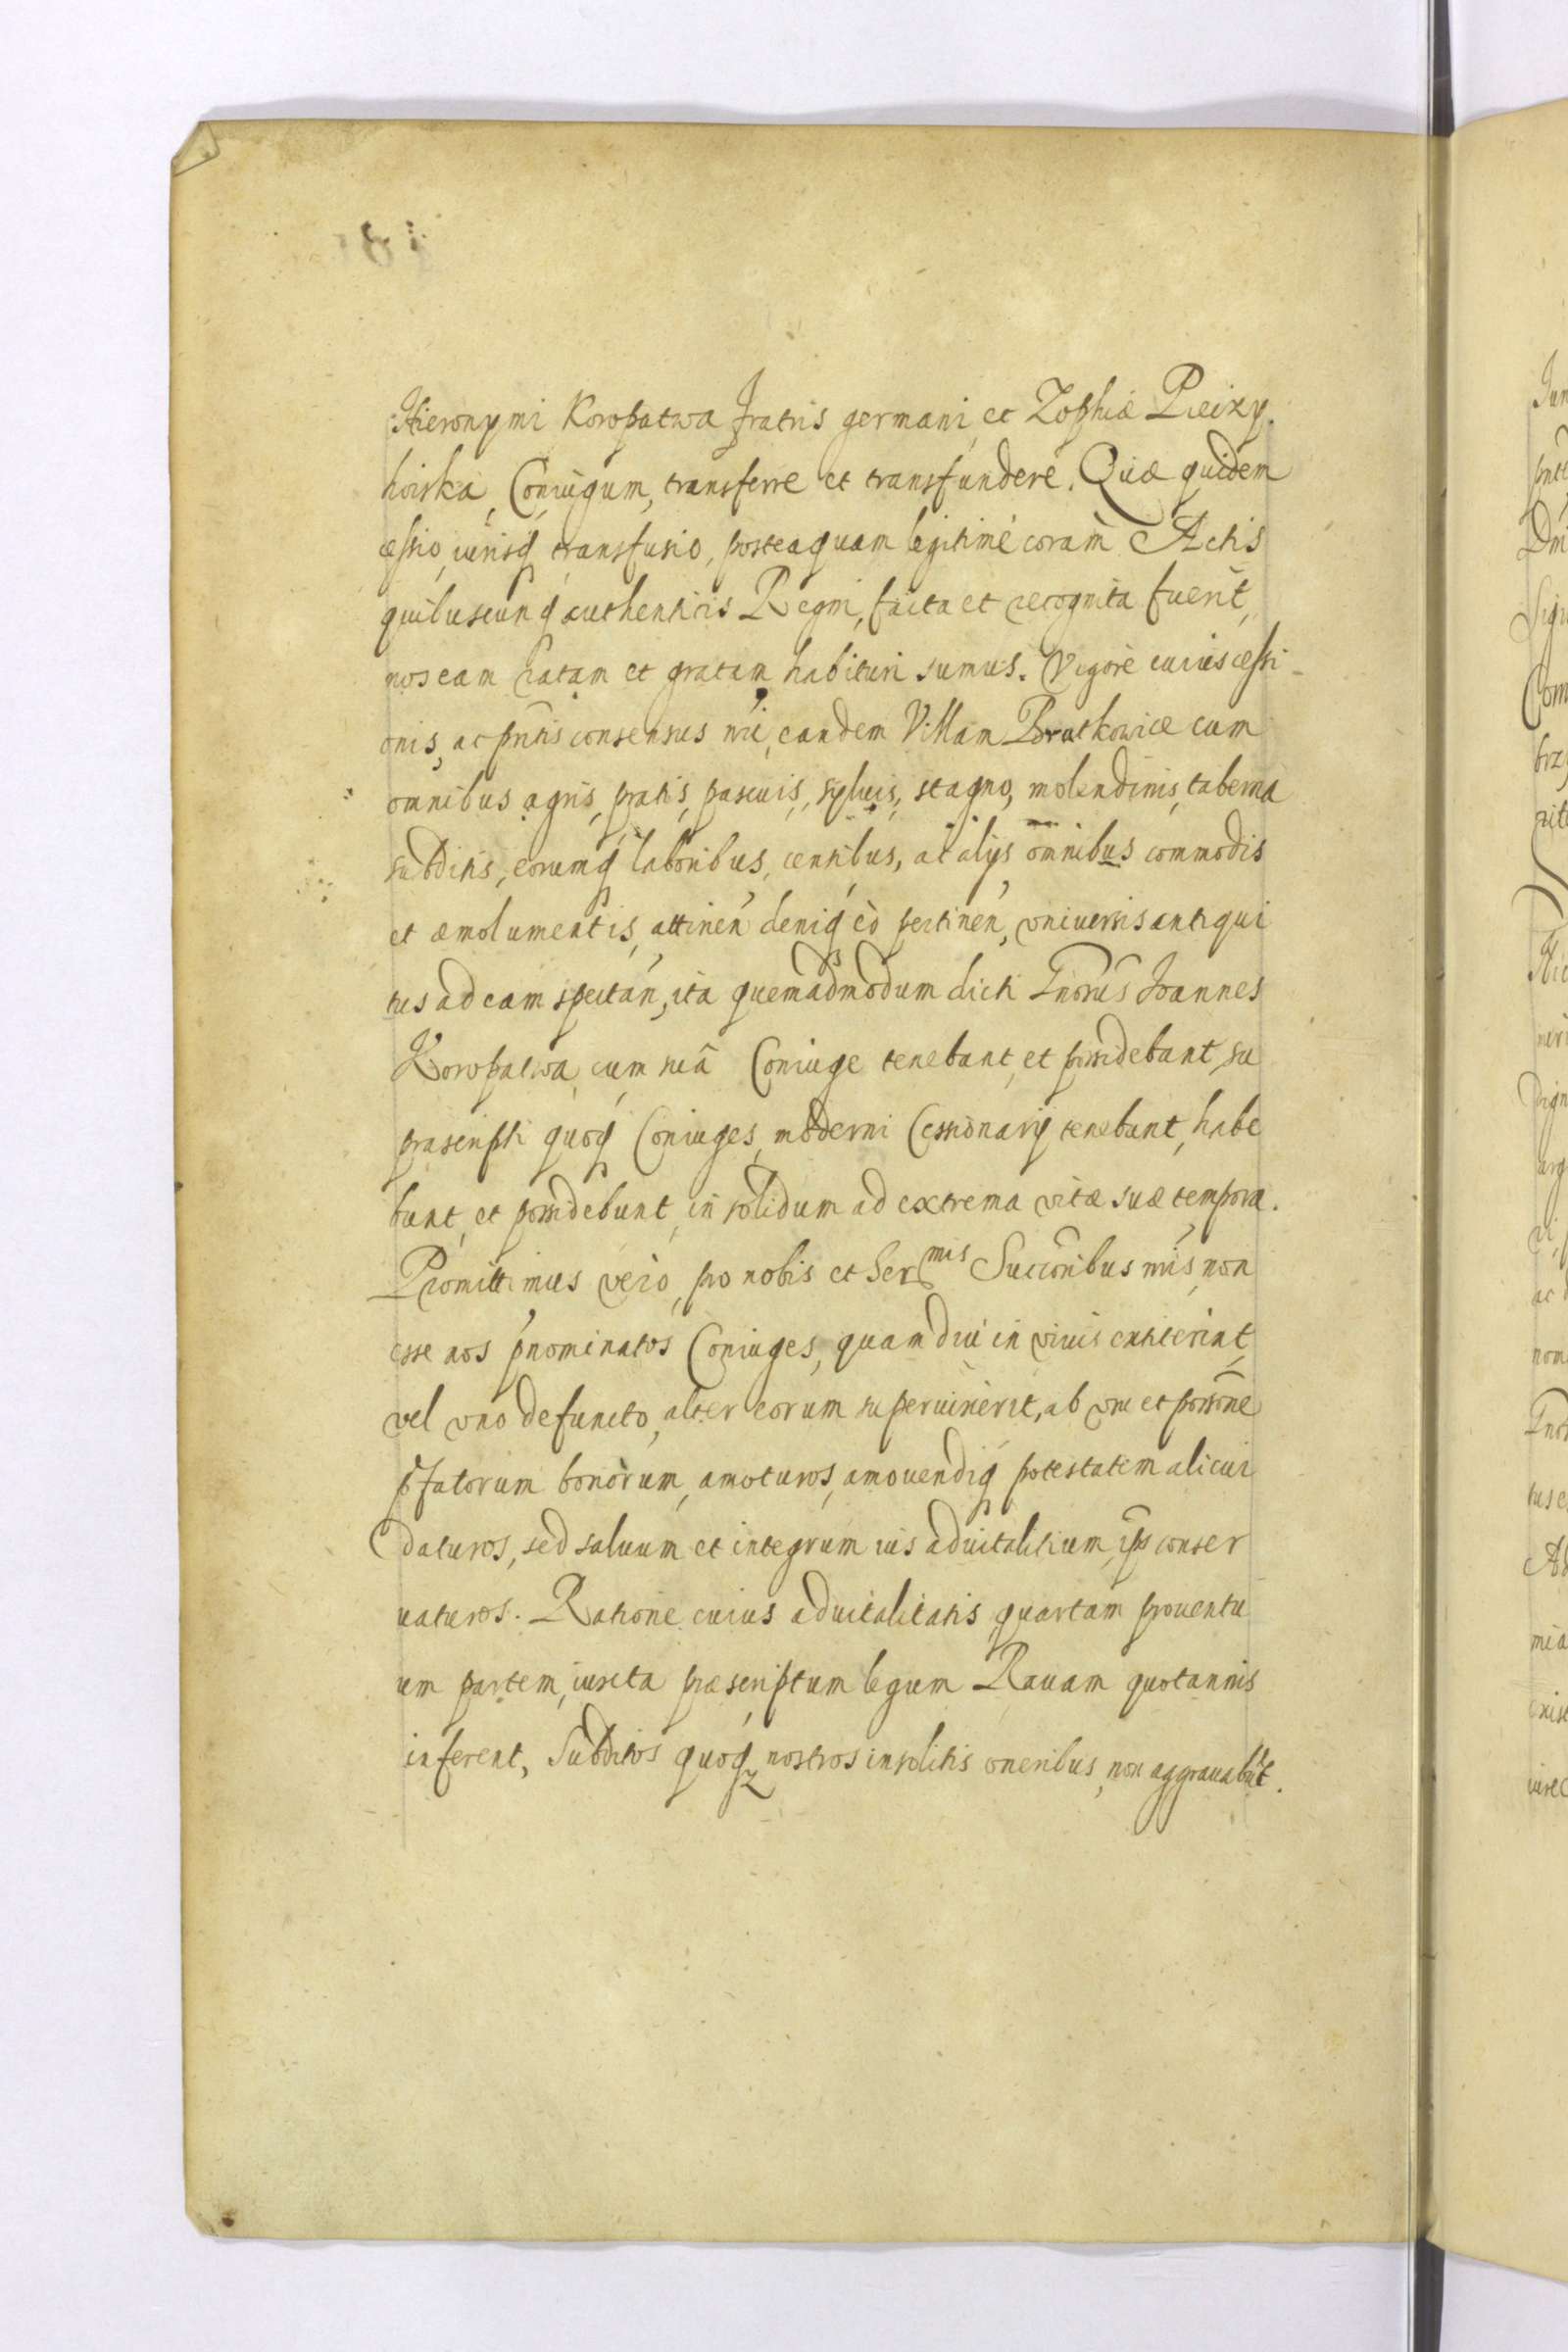 Hieronymi Koropatwa fratris germani, et Zophiæ Pieczy
hoiska, Coniugum, transferre et transfundere. Quæ quidem
cessio, iurisq transfusio, posteaquam legitimè coram Actis
quibuscunq authenticis Regni, facta et recognita fuerit,
nos eam ratam et gratam habituri sumus. Vigore cuius cessi-
onis, ac pntis consensus nri, eandem Villam Bratkowice cum
omnibus agris, pratis, pascuis, syluis, stagno, molendinis, taberna
subditis, eorumq laboribus, censibus, ac alijs omnibus commodis
et æmolumentis, attinen deniq eò pertinen, vniuersis antiqui
tus ad eam spectan, ita quemadmodum dicti Gnosus Joannes
Koropatwa, cum suâ Coniuge tenebant, et possidebant, su
prascripti quoq Coniuges, moderni Cessionarij tenebunt, habe
bunt, et possidebunt, in solidum ad extrema vitæ suæ tempora.
Promittimus verò, pro nobis et Ser^mis Succoribus nris, non
esse nos pnominatos Coniuges, quamdiu in viuis extiterint,
vel vno defuncto, alter eorum superuixerit, ab vsu et possone
pfatorum bonorum, amoturos, amouendiq potestatem alicui
daturos, sed saluum et integrum ius aduitalitium, ipis conser
uaturos. Ratione cuius aduitalitatis, quartam prouentu
um partem, iuxta præscriptum legum Rauam quotannis
inferent, Subditos quoq nostros insolitis oneribus, non aggrauabut.